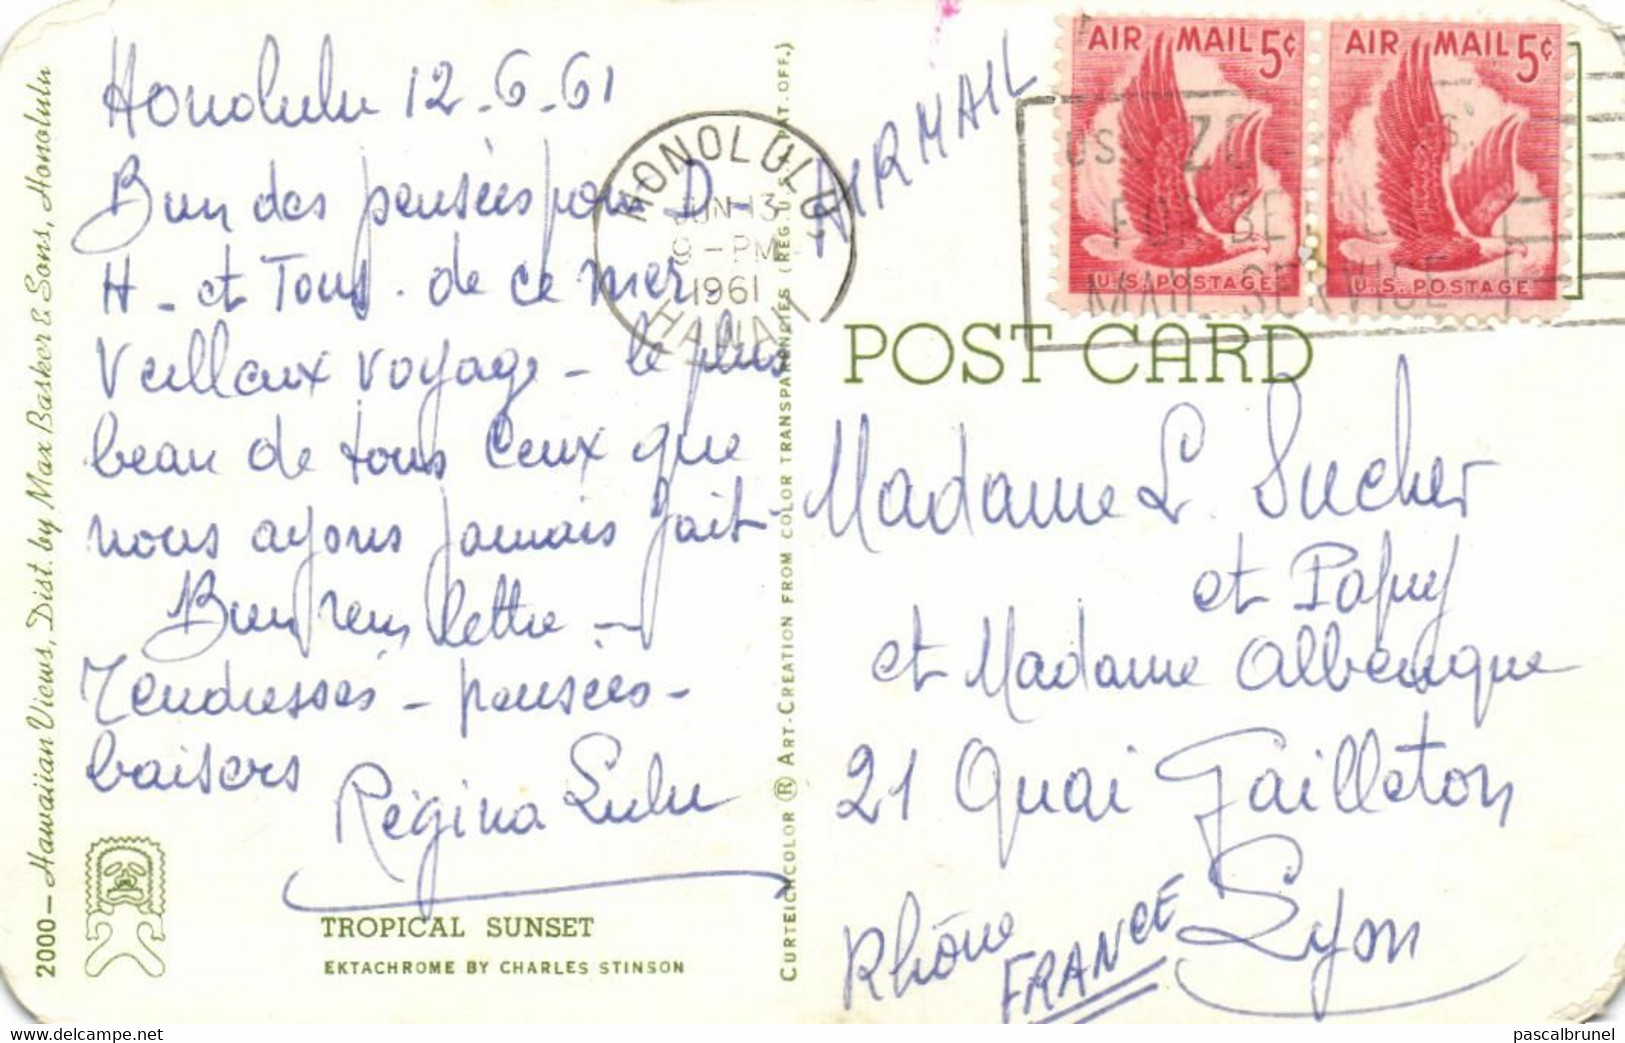 Honolulu 12-6-61
Bien des pensées pour D-
H - et Tous. de ce mer
Veilleux voyage - le plus
beau de tous ceux que
nous ayons jamais fait-
Bien reçu lettre -
Tendresses - pensées-
baisers
Régina Lulu
TROPICAL SUNSET
EKTACHROME BY CHARLES STINSON
2000 - Hawaiian Views, Dist. by Max Basker & Sons, Honolulu
CURTEICHCOLOR ® ART-CREATION FROM COLOR TRANSPARENCIES (REG. U.S. PAT. OFF.)
HONOLULU
JUN 13
9 - PM
1961
HAWAII
AIR MAIL
AIR MAIL 5¢
U.S. POSTAGE
AIR MAIL 5¢
U.S. POSTAGE
FOR
MAIL SERVICE
POST CARD
Madame L. Sucher
et Papuy
et Madame Alberique
21 Quai Gailleton
Lyon
Rhône
FRANCE
https://www.delcampe.net
pascalbrunel